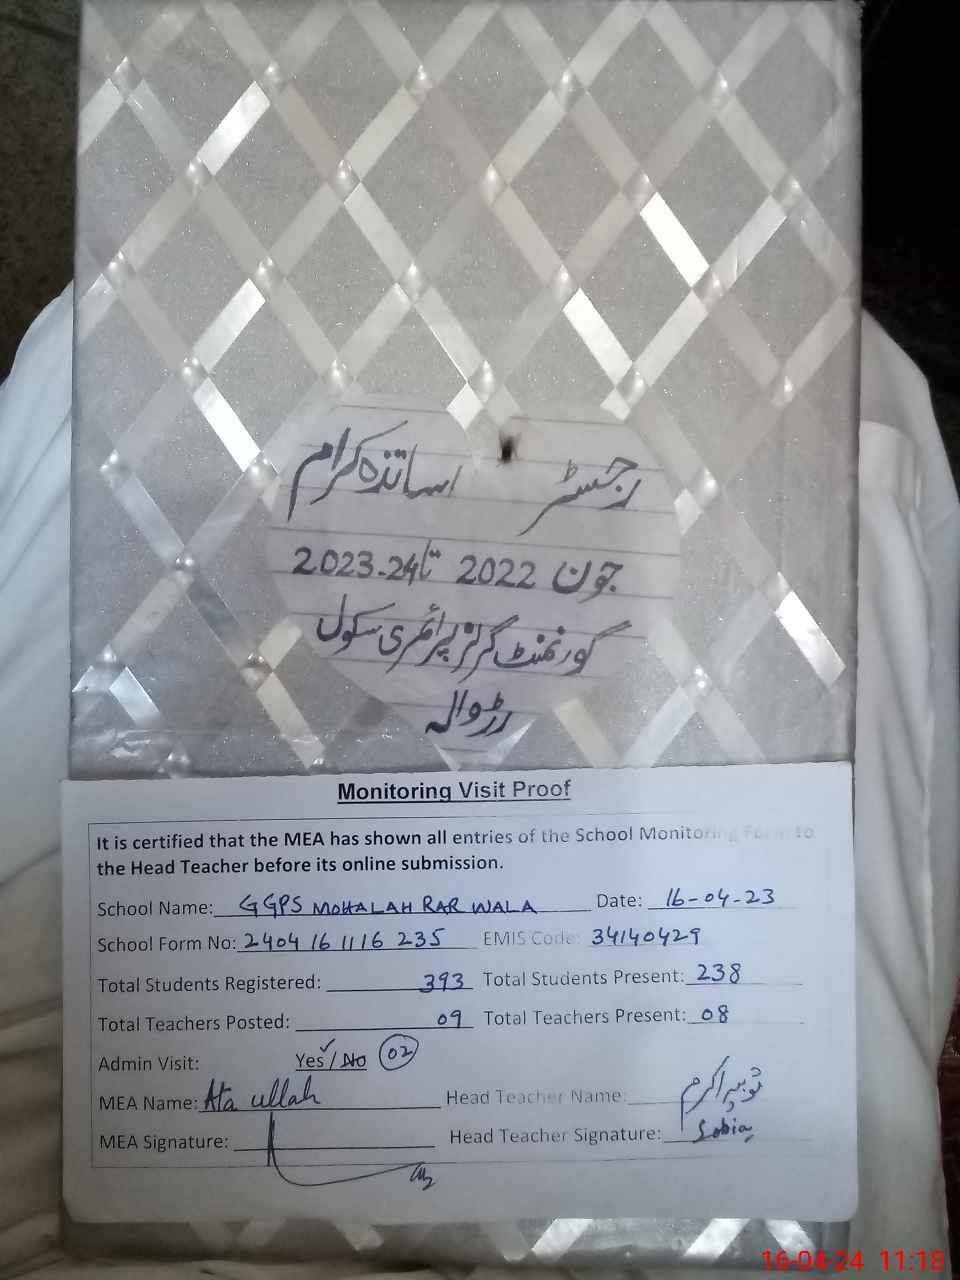 رجسٹر اساتذہ کرام
جون 2022 تا 2023-24
گورنمنٹ گرلز پرائمری سکول
رڑوالہ
Monitoring Visit Proof
It is certified that the MEA has shown all entries of the School Monitoring Form to
the Head Teacher before its online submission.
School Name: GGPS MOHALAH RAR WALA Date: 16-04-23
School Form No: 2404 16 1116 235 EMIS Code: 34140429
Total Students Registered: 393 Total Students Present: 238
Total Teachers Posted: 09 Total Teachers Present: 08
Admin Visit: Yes / No 02
MEA Name: Ata ullah Head Teacher Name: ثوبیہ اکرم
MEA Signature: Head Teacher Signature: Sobia
16-04-24 11:18